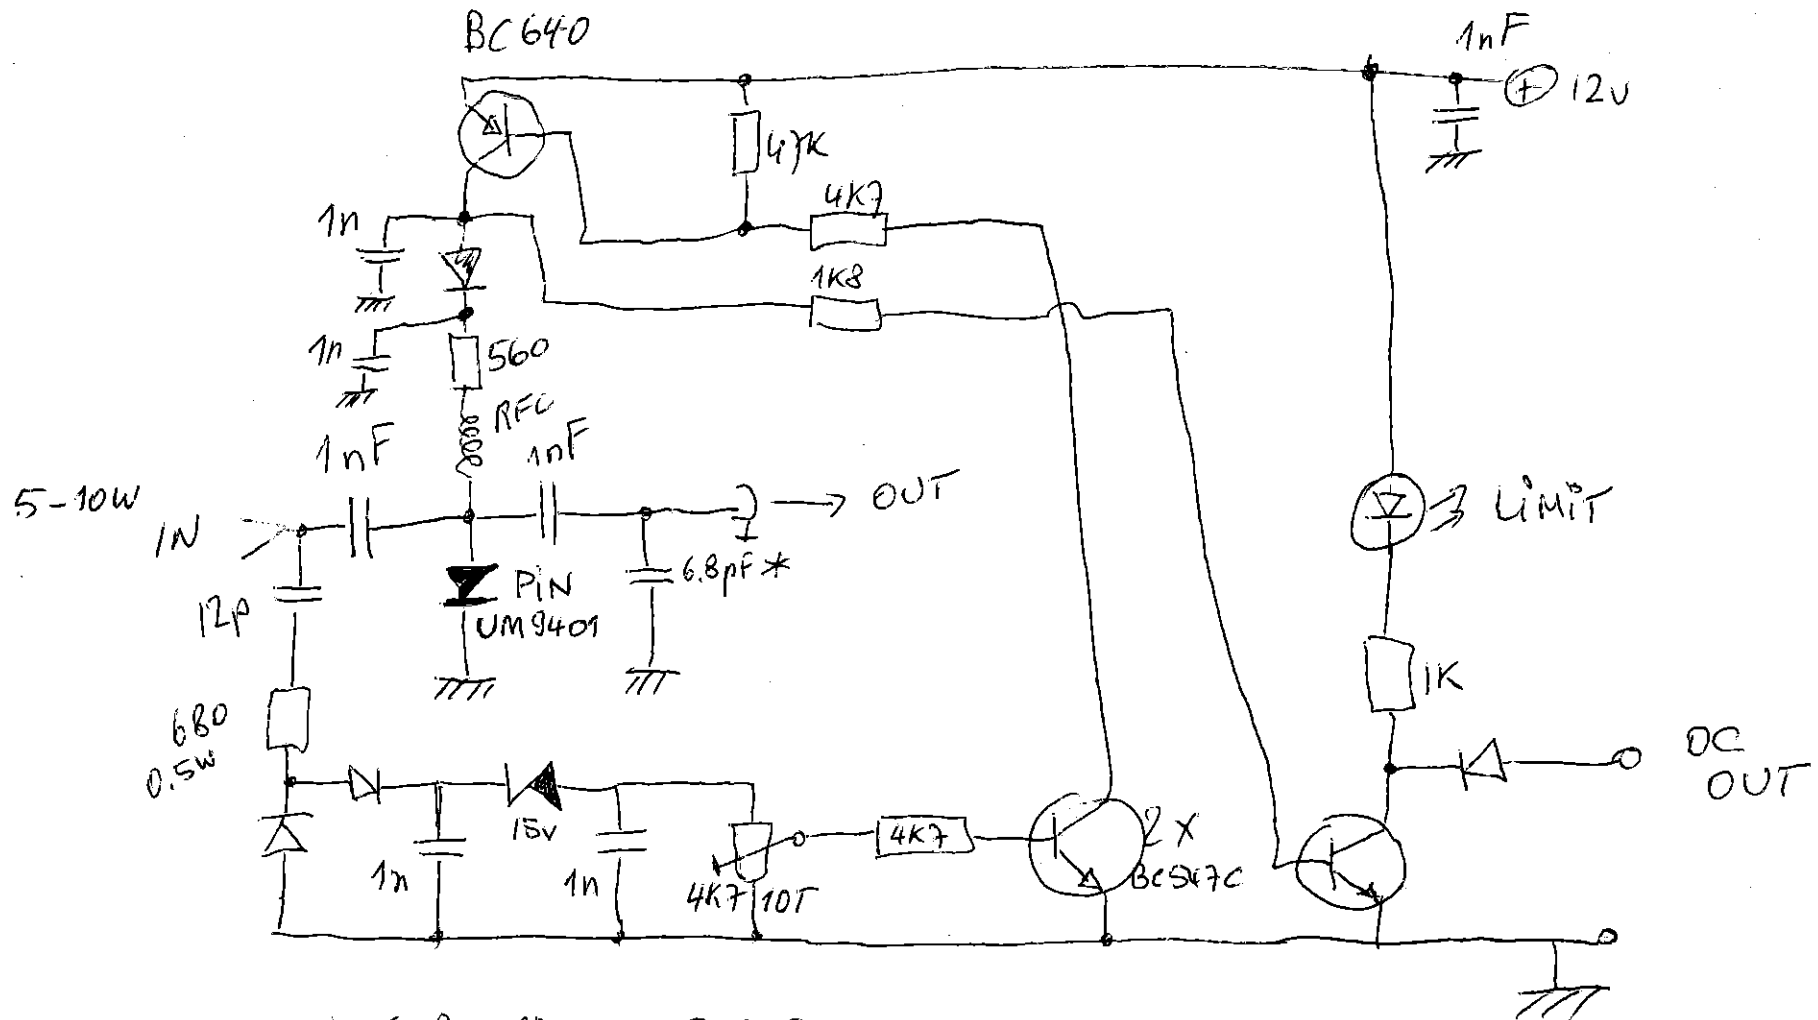 BC640
1nF
+ 12v
47K
4K7
1n
1K8
1n
560
RFC
1nF
1nF
5-10W
IN
OUT
LiMiT
PiN
UM9401
6.8pF*
12p
680
0.5W
1K
DC
OUT
15v
1n
1n
4K7
10T
4K7
2x
BC547C